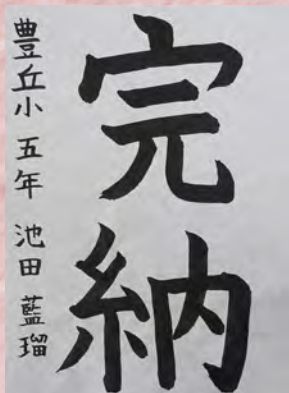 完納
豊丘小 五年 池田 藍瑠